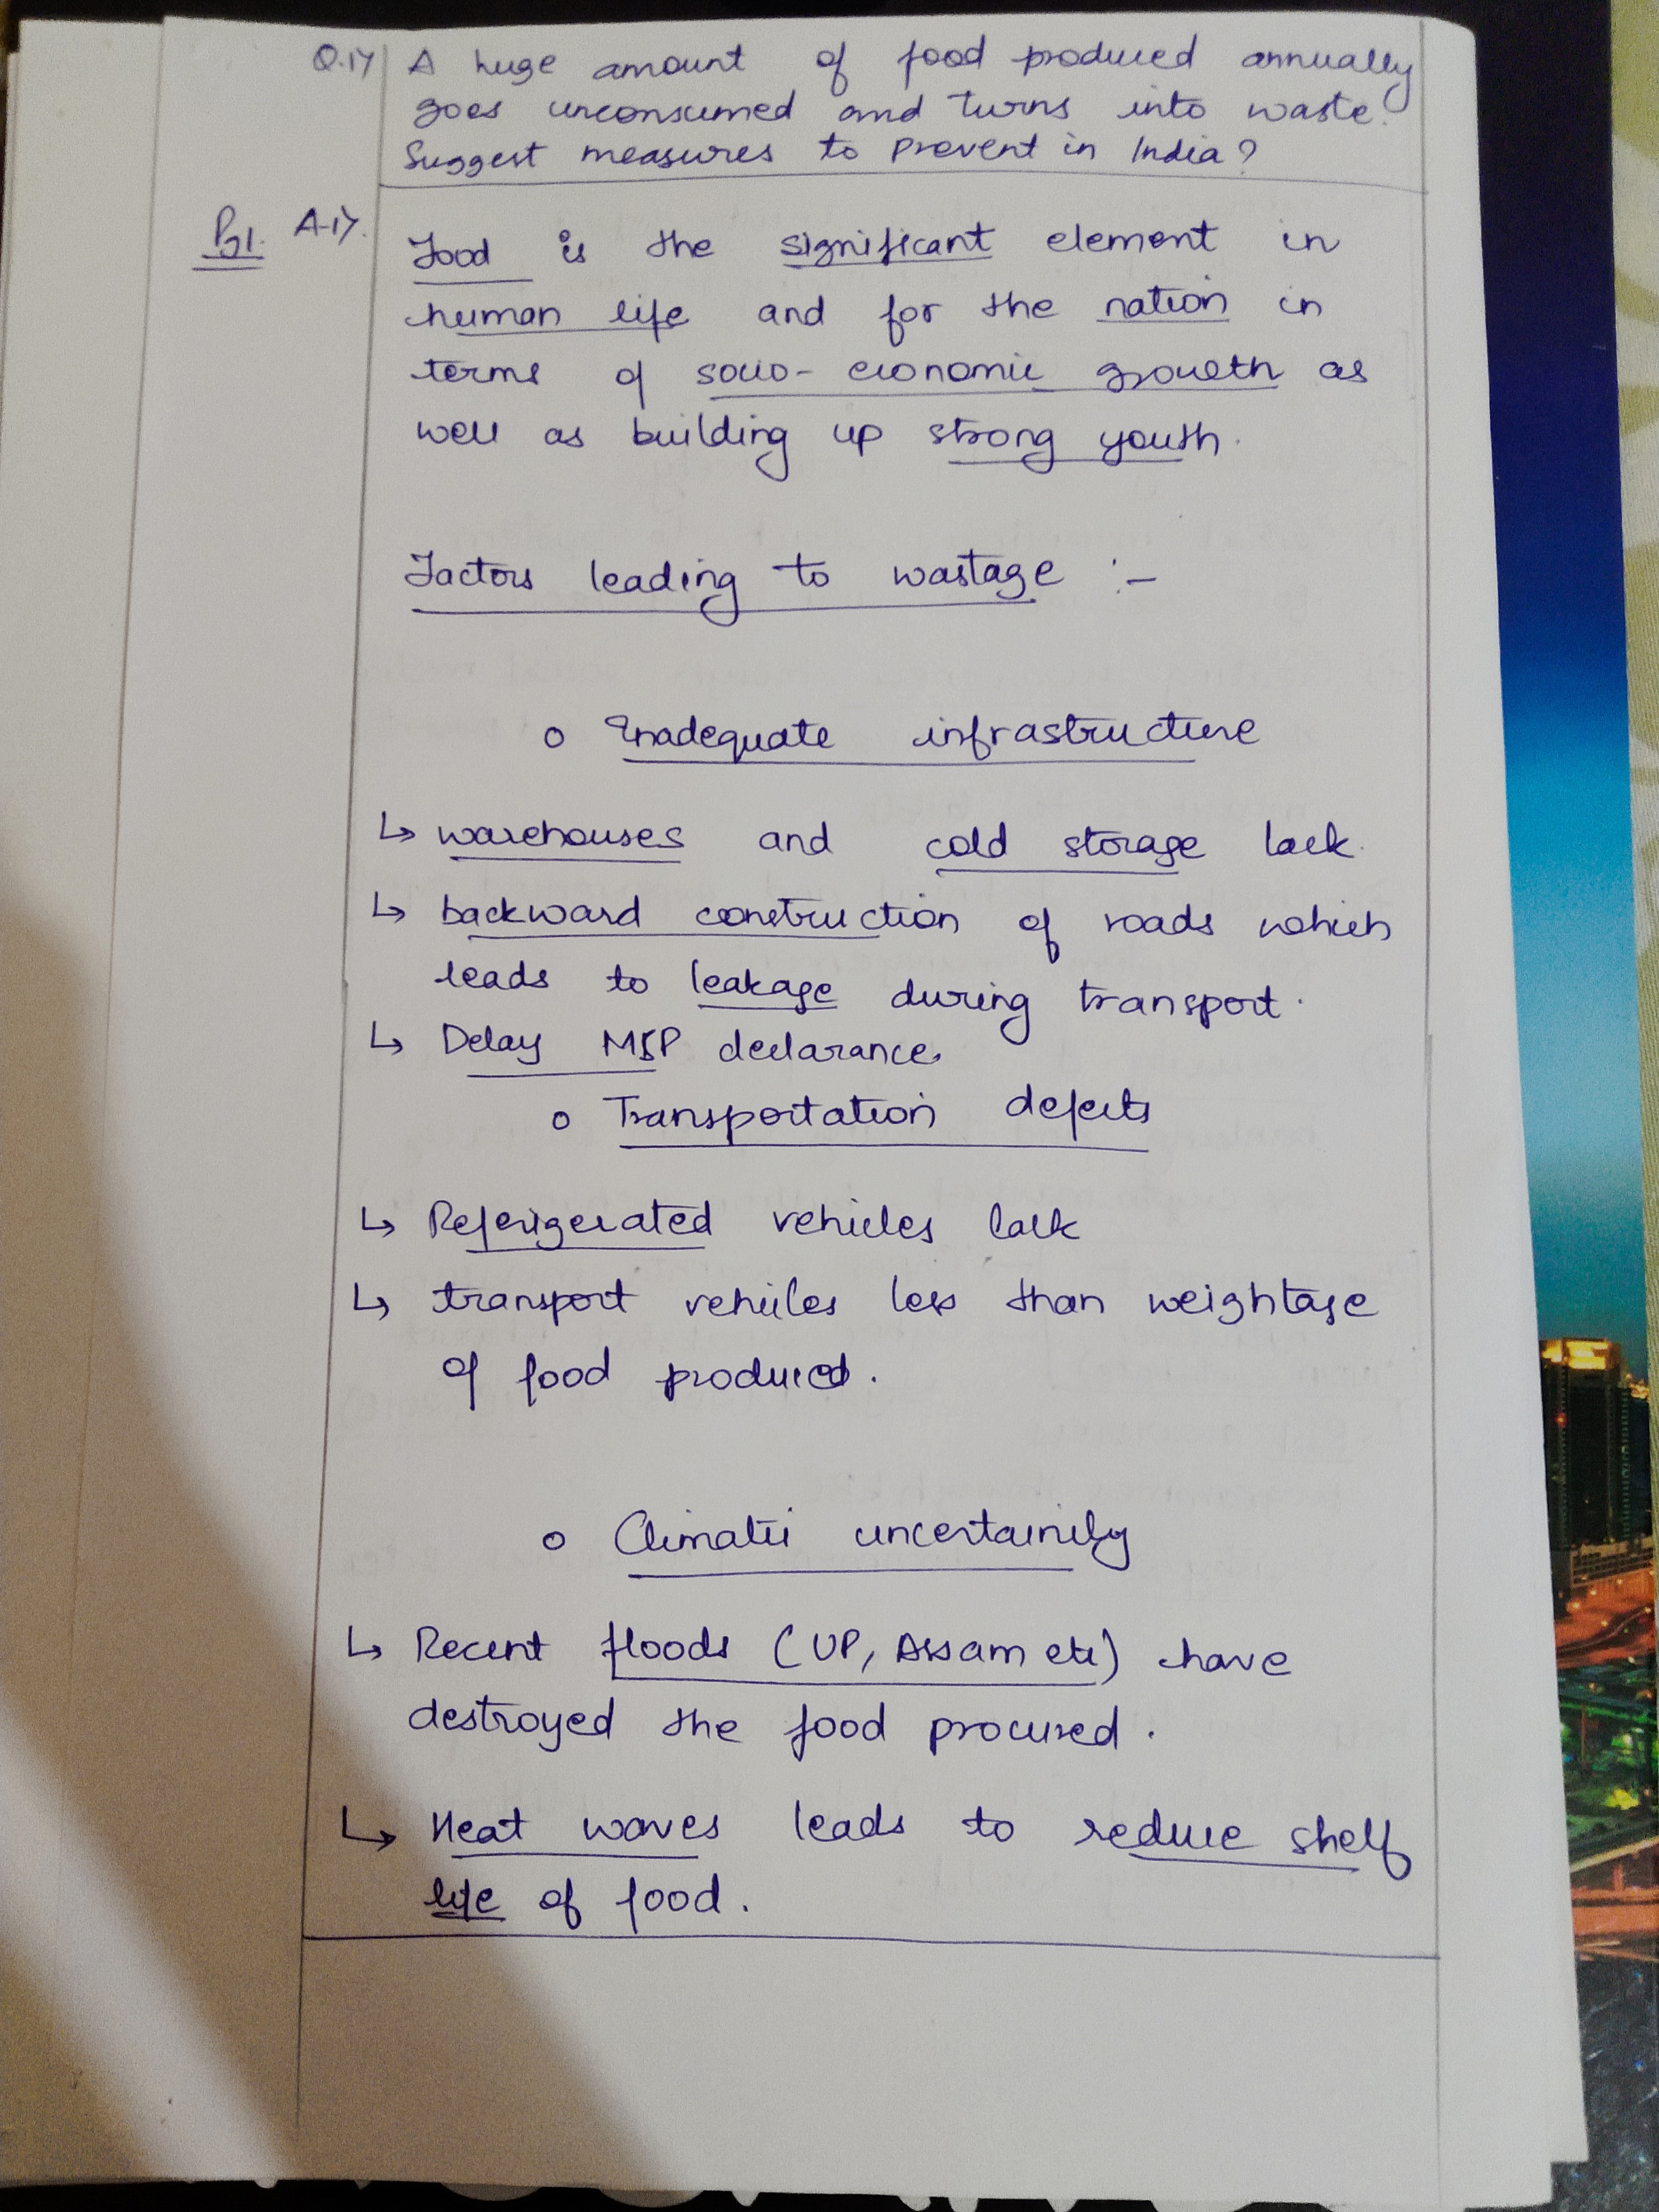 Q.17 A huge amount of food produced annually
goes unconsumed and turns into waste.
Suggest measures to prevent in India?
Pg1. A-17.
Food is the significant element in
human life and for the nation in
terms of socio-economic growth as
well as building up strong youth.
Factors leading to wastage :-
o Inadequate infrastructure
↳ warehouses and cold storage lack.
↳ backward construction of roads which
leads to leakage during transport.
↳ Delay MSP declarance.
o Transportation defects
↳ Referigerated vehicles lack
↳ transport vehicles less than weightage
of food produced.
o Climatic uncertainity
↳ Recent floods (UP, Assam etc) have
destroyed the food procured.
↳ Heat waves leads to reduce shelf
life of food.